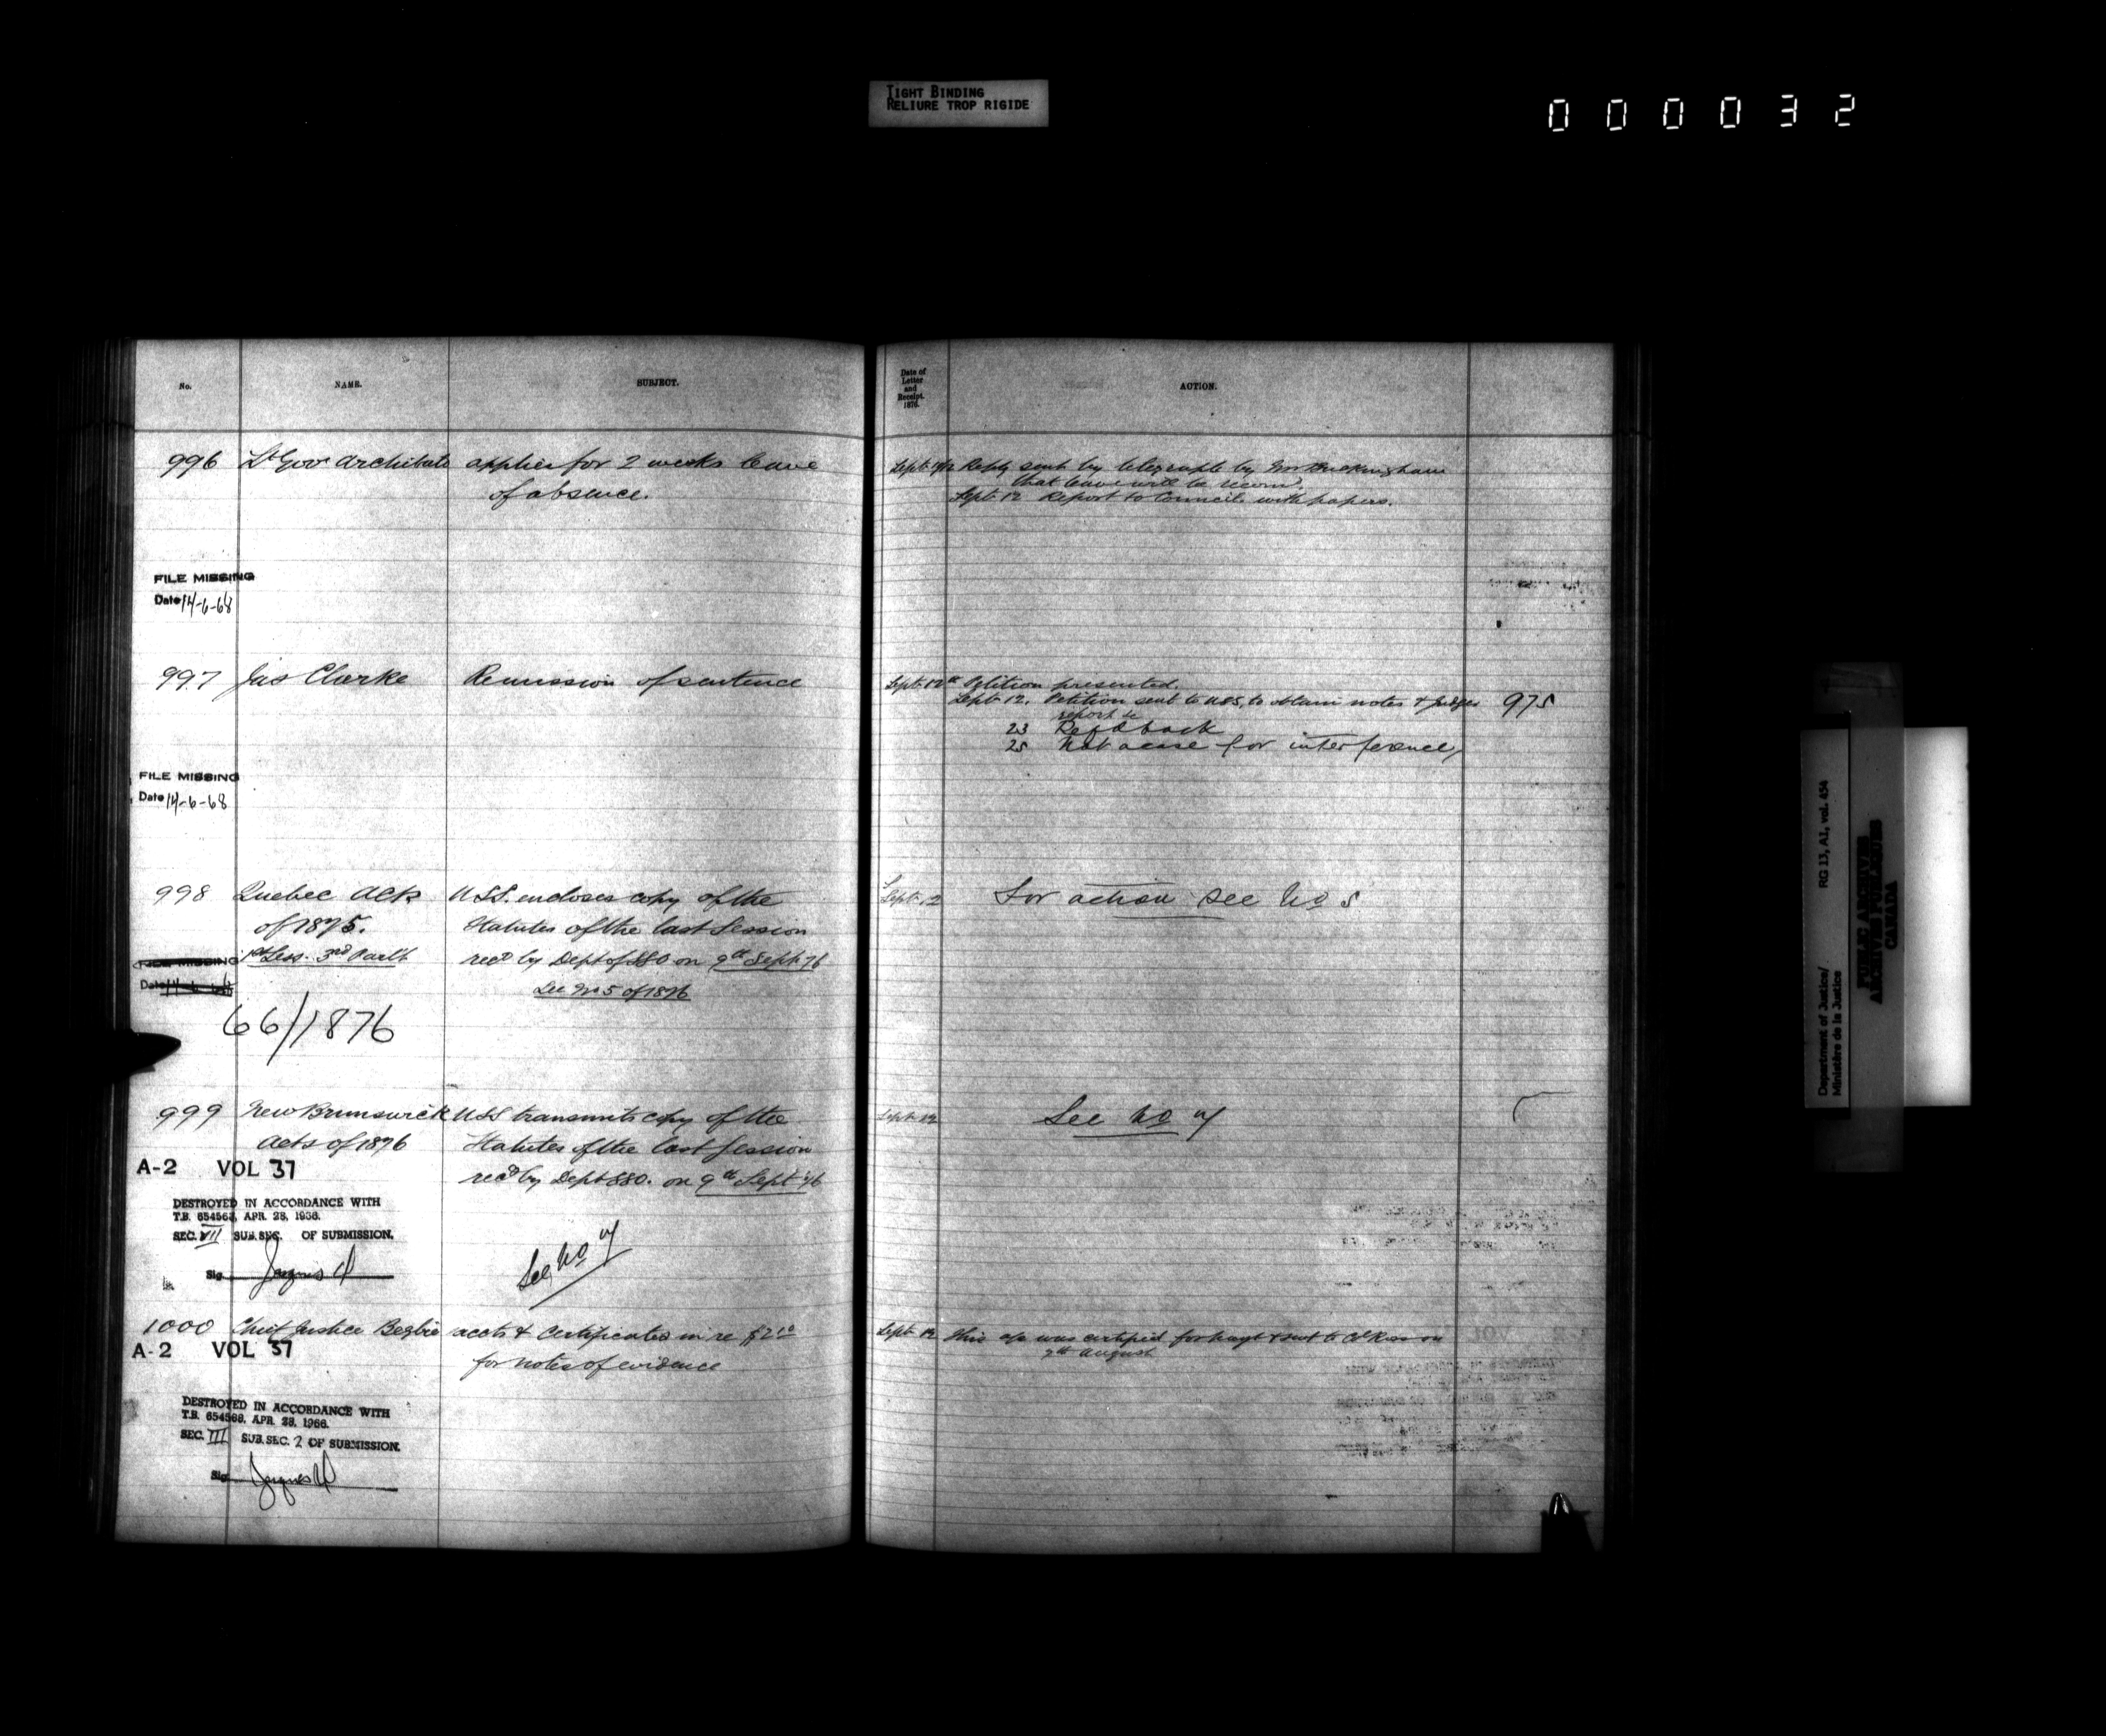 TIGHT BINDING
RELIURE TROP RIGIDE
000032
No. NAME. SUBJECT.
Date of
Letter
and
Receipt.
1876.
ACTION.
996 Lt Govr Archibald applies for 2 weeks leave
of absence.
Sept 9/12 Reply sent by telegraph by Mr Buckingham
that leave will be recomd.
Sept. 12 Report to Council with papers.
FILE MISSING
Date 14-6-68
997 Jas Clarke Remission of sentence
Sept 12th Petition presented.
Sept. 12. Petition sent to USS, to obtain notes & Judges 975
report &c
23 Refd back
25 Not a case for interference
FILE MISSING
Date 14-6-68
998 Quebec Acts U.S.S. encloses copy of the
of 1875. Statutes of the last Session
1st Sess. 3rd Parlt recd by Dept of SSO on 9th Sept 76
See No 5 of 1876
Sept. 12 For action see No 5
FILE MISSING
Date 14-6-68
66/1876
999 New Brunswick USS transmits copy of the
Acts of 1876 Statutes of the last Session
recd by Dept SSO. on 9th Sept '76
Sept. 12 See No
A-2 VOL 37
DESTROYED IN ACCORDANCE WITH
T.B. 654568, APR. 28, 1966.
SEC. VII SUB.SEC. OF SUBMISSION.
Sig.
See No
1000 Chief Justice Begbie accts & Certificates in re
for notes of evidence
Sept. 12 This a/c was certified for payt & sent to Col Ross on
9th August
A-2 VOL 37
DESTROYED IN ACCORDANCE WITH
T.B. 654568, APR. 28, 1966.
SEC. III SUB.SEC. 2 OF SUBMISSION.
Sig.
Department of Justice/
Ministère de la Justice
RG 13, A1, vol. 454
PUBLIC ARCHIVES
ARCHIVES PUBLIQUES
CANADA